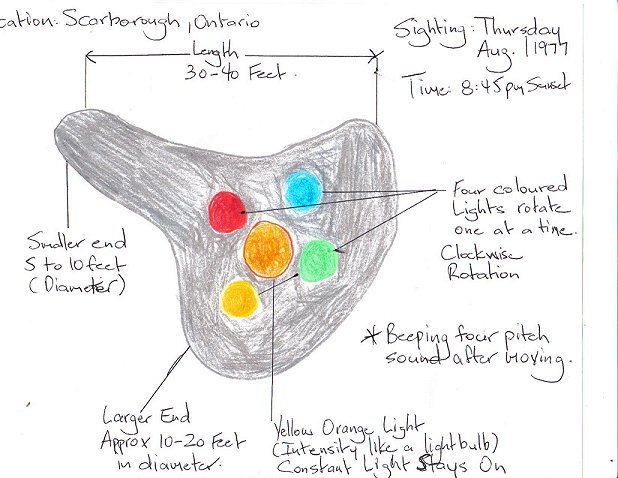 cation: Scarborough, Ontario
Sighting: Thursday
Aug. 1977
Time: 8:45 pm Sunset
Length
30-40 Feet.
Four coloured
Lights rotate
one at a time.
Clockwise
Rotation
Smaller end
5 to 10 feet
(Diameter)
* Beeping four pitch
sound after moving.
Larger End
Approx 10-20 Feet
in diameter.
Yellow Orange Light
(Intensity like a lightbulb)
Constant Light Stays On